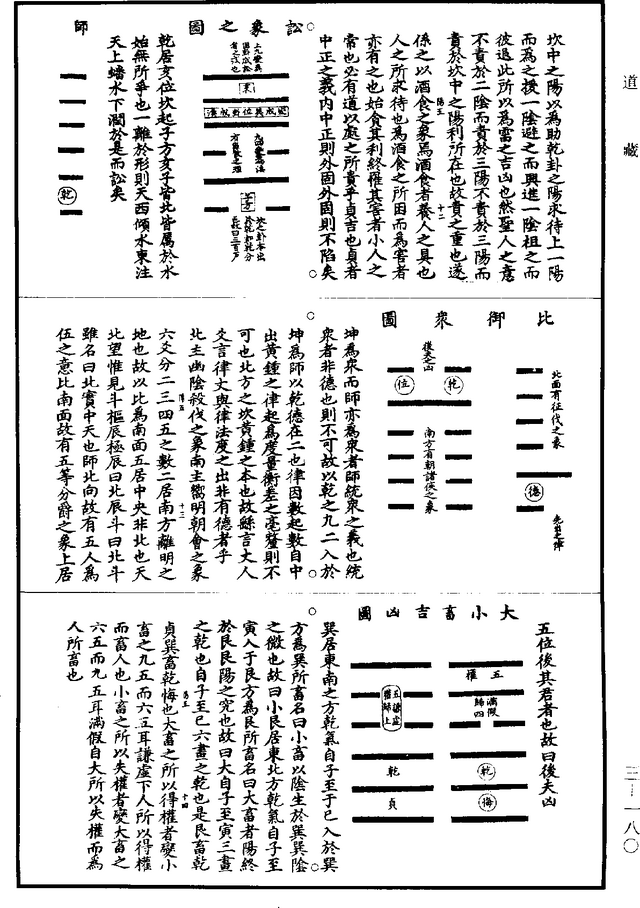 道藏
坎中之陽以為助乾卦之陽求待上一陽
而為之援一陰避之而興進一陰祖之而
彼退此所以為需之吉凶也然聖人之意
不貴於二陰而貴於三陽不貴於三陽而
貴於坎中之陽利所在也故貴之重也遂
係之以酒食之象焉酒食者養人之具也
人之所求待也為酒食之所困而為害者
亦有之也始食其利終罹其害者小人之
常也必有道以處之所貴乎貞吉也貞者
中正之義內中正則外固外固則不陷矣
訟象之圖
乾居亥位坎起子方亥子皆北皆屬於水
始無所爭也一離於形則天西傾水東注
天上蟠水下潤於是而訟矣
師
乾
比御眾圖
北面有征伐之象
德
後夫凶
位
乾
南方有朝諸侯之象
坤為眾而師亦為眾者師統眾之義也統
眾者非德也則不可故以乾之九二入於
坤為師以乾德在二也律因數起數自中
出黃鍾之律起為度量衡差之毫釐則不
可也北方之坎黃鍾之本也故繇言丈人
爻言律丈與律法度之出非有德者乎
北主幽陰殺伐之象南主嚮明朝會之象
六爻分二三四五之數二居南方離明之
地也故以比為南面五居中央非北也天
北望惟見斗樞辰極辰曰北辰斗曰北斗
雖名曰北實中天也師北向故有五人為
伍之意比南面故有五等分爵之象上居
五位後其君者也故曰後夫凶
大小畜吉凶圖
五權
乾
悔
乾
貞
巽居東南之方乾氣自子至于巳入於巽
方為巽所畜名曰小畜以陰生於巽巽陰
之微也故曰小艮居東北方乾氣自子至
寅入于艮方為艮所畜名曰大畜者陽終
於艮艮陽之究也故曰大自子至寅三畫
之乾也自子至巳六畫之乾也是艮畜乾
貞巽畜乾悔也大畜之所以得權者變小
畜之九五而六五耳謙虛下人所以得權
而畜人也小畜之所以失權者變大畜之
六五而九五耳滿假自大所以失權而為
人所畜也
三一一八〇